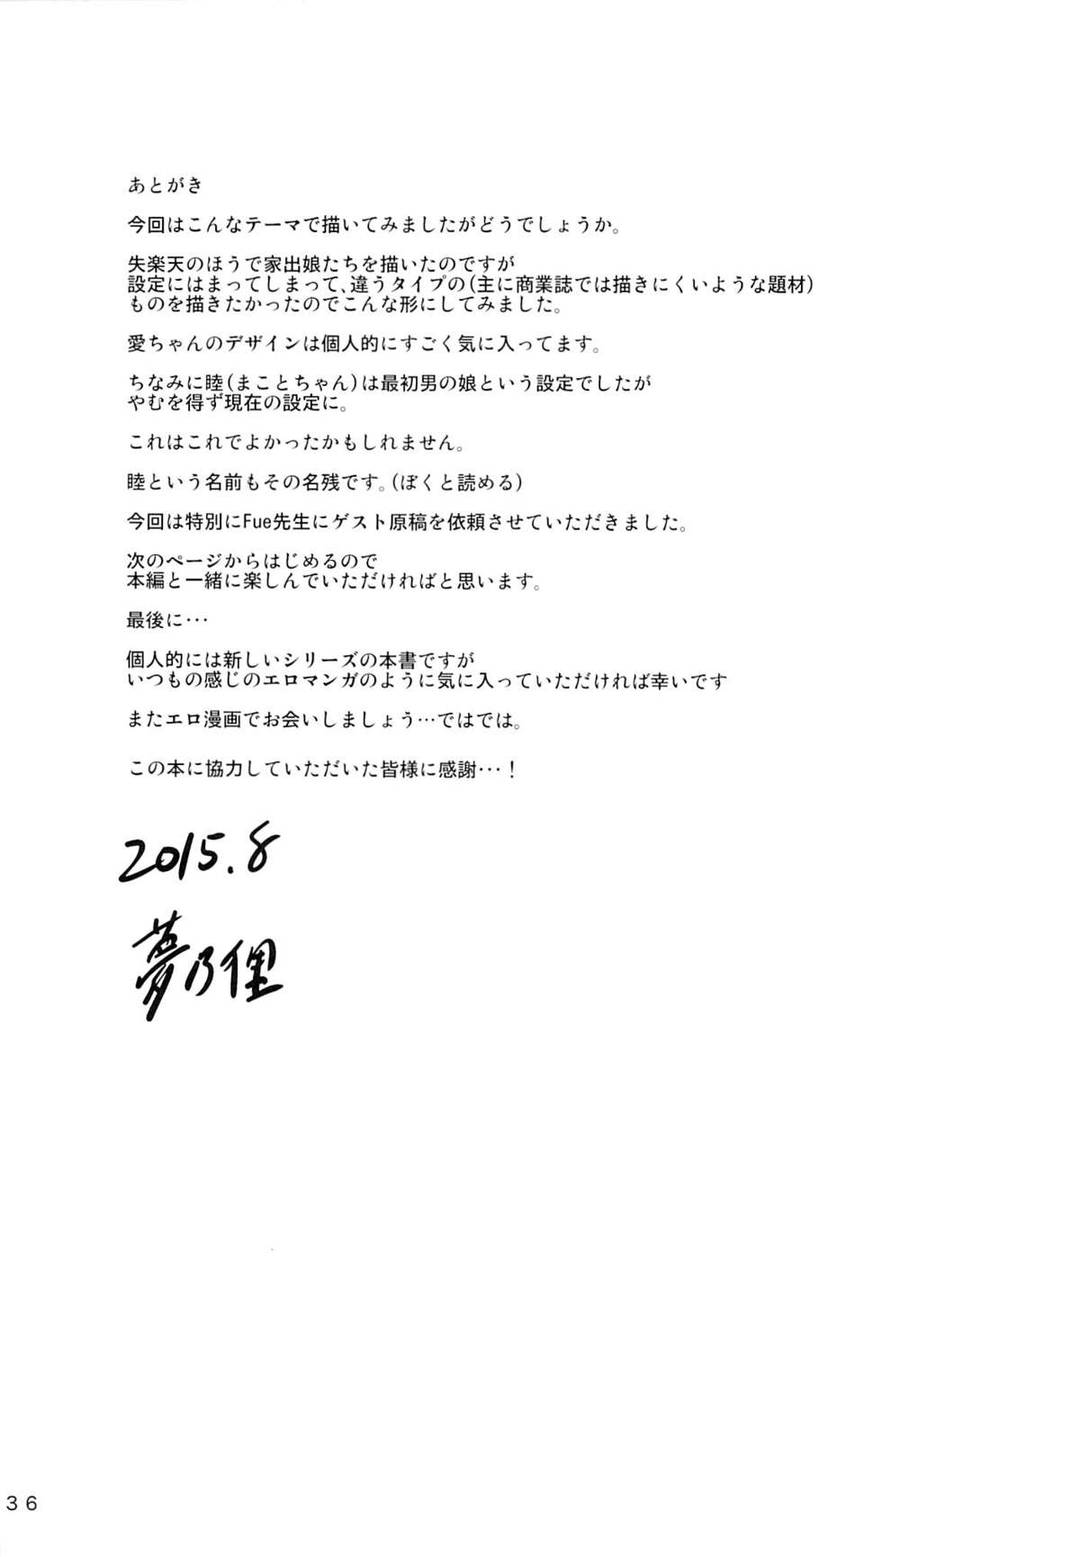 あとがき
今回はこんなテーマで描いてみましたがどうでしょうか。
失楽天のほうで家出娘たちを描いたのですが
設定にはまってしまって、違うタイプの(主に商業誌では描きにくいような題材)
ものを描きたかったのでこんな形にしてみました。
愛ちゃんのデザインは個人的にすごく気に入ってます。
ちなみに睦(まことちゃん)は最初男の娘という設定でしたが
やむを得ず現在の設定に。
これはこれでよかったかもしれません。
睦という名前もその名残です。(ぼくと読める)
今回は特別にFue先生にゲスト原稿を依頼させていただきました。
次のページからはじめるので
本編と一緒に楽しんでいただければと思います。
最後に…
個人的には新しいシリーズの本書ですが
いつもの感じのエロマンガのように気に入っていただければ幸いです
またエロ漫画でお会いしましょう…ではでは。
この本に協力していただいた皆様に感謝…!
2015.8
夢乃狸
36